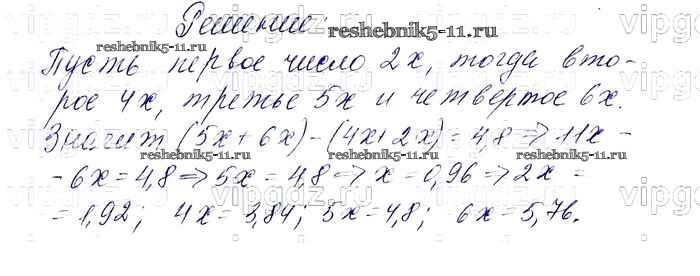 Решение:
Пусть первое число 2x, тогда вто-
рое 4x, третье 5x и четвертое 6x.
Значит (5x + 6x) - (4x + 2x) = 4,8 => 11x -
- 6x = 4,8 => 5x = 4,8 => x = 0,96 => 2x =
= 1,92; 4x = 3,84; 5x = 4,8; 6x = 5,76.
reshebnik5-11.ru
reshebnik5-11.ru
reshebnik5-11.ru
reshebnik5-11.ru
vipgdz.ru